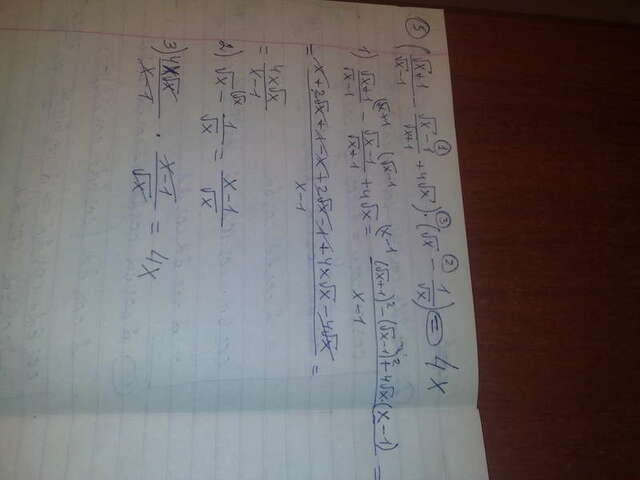 ⑤ (√x+1/√x-1 - √x-1/√x+1 + 4√x) · (√x - 1/√x) = 4x
① ③ ②
1) √x+1/√x-1 - √x-1/√x+1 + 4√x = (√x+1)² - (√x-1)² + 4√x(x-1)/x-1 =
= x+2√x+1-x+2√x-1+4x√x-4√x/x-1 =
= 4x√x/x-1
2) √x - 1/√x = x-1/√x
3) 4x√x/x-1 · x-1/√x = 4x